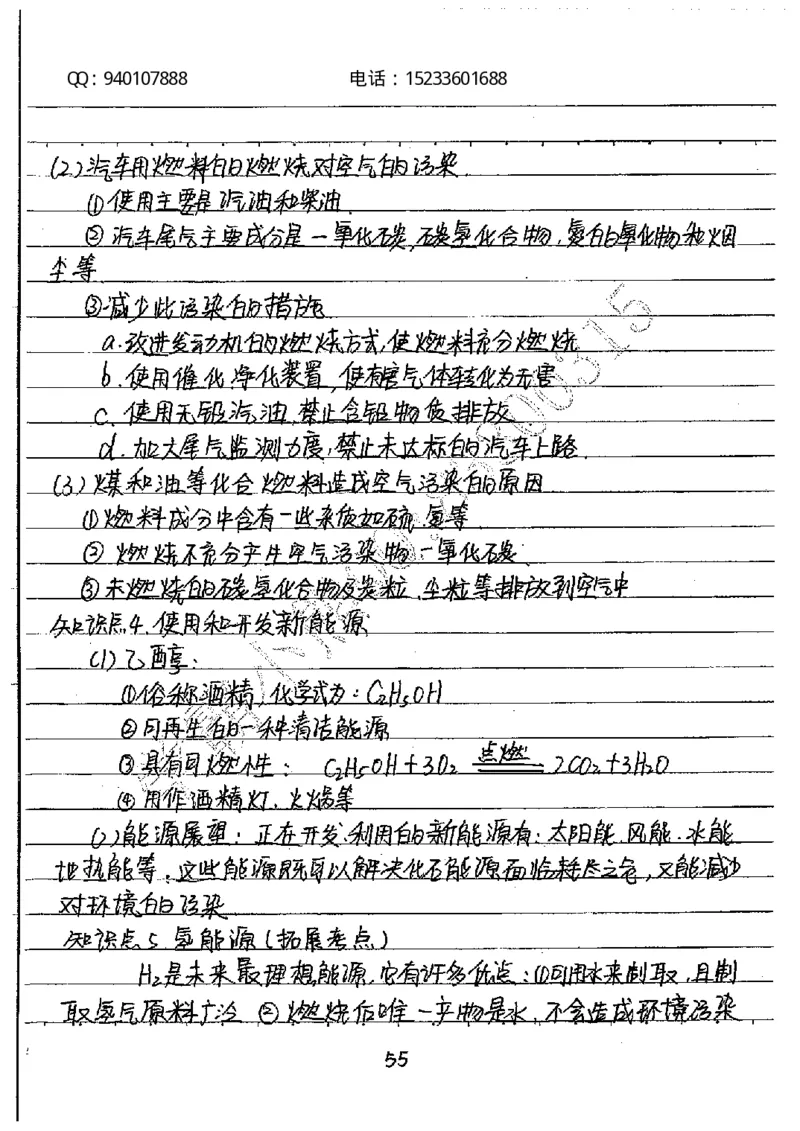 QQ：940107888 电话：15233601688
(2)汽车用燃料的燃烧对空气的污染
①使用主要是汽油和柴油
②汽车尾气主要成分是一氧化碳,碳氢化合物,氮的氧化物和烟
尘等
③减少此污染的措施
a.改进发动机的燃烧方式,使燃料充分燃烧
b.使用催化净化装置,使有害气体转化为无害
c.使用无铅汽油,禁止含铅物质排放
d.加大尾气监测力度,禁止未达标的汽车上路
(3)煤和油等化合燃料造成空气污染的原因
①燃料成分中含有一些杂质如硫.氮等
②燃烧不充分产生空气污染物一氧化碳
③未燃烧的碳氢化合物及炭粒.尘粒等排放到空气中
知识点4.使用和开发新能源
(1)乙醇：
①俗称酒精,化学式为：C2H5OH
②可再生的一种清洁能源
③具有可燃性： C2H5OH+3O2 点燃 2CO2+3H2O
④用作酒精灯.火锅等
()能源展望：正在开发.利用的新能源有：太阳能.风能.水能
地热能等.这些能源既可以解决化石能源面临耗尽之危,又能减少
对环境的污染
知识点5 氢能源(拓展考点)
H2是未来最理想能源.它有许多优点：①可用水来制取,且制
取氢气原料广泛 ②燃烧后唯一产物是水,不会造成环境污染
55